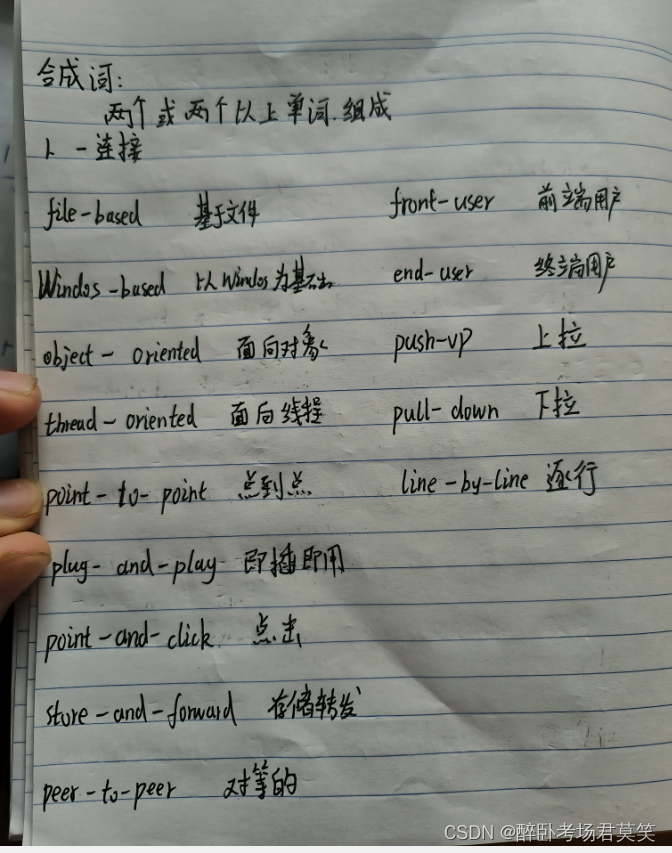 合成词:
两个或两个以上单词组成
1、-连接
file-based 基于文件 front-user 前端用户
Windos-based 以Windos为基础 end-user 终端用户
object-oriented 面向对象 push-up 上拉
thread-oriented 面向线程 pull-down 下拉
point-to-point 点到点 line-by-line 逐行
plug-and-play 即插即用
point-and-click 点击
store-and-forward 存储转发
peer-to-peer 对等的
CSDN @醉卧考场君莫笑